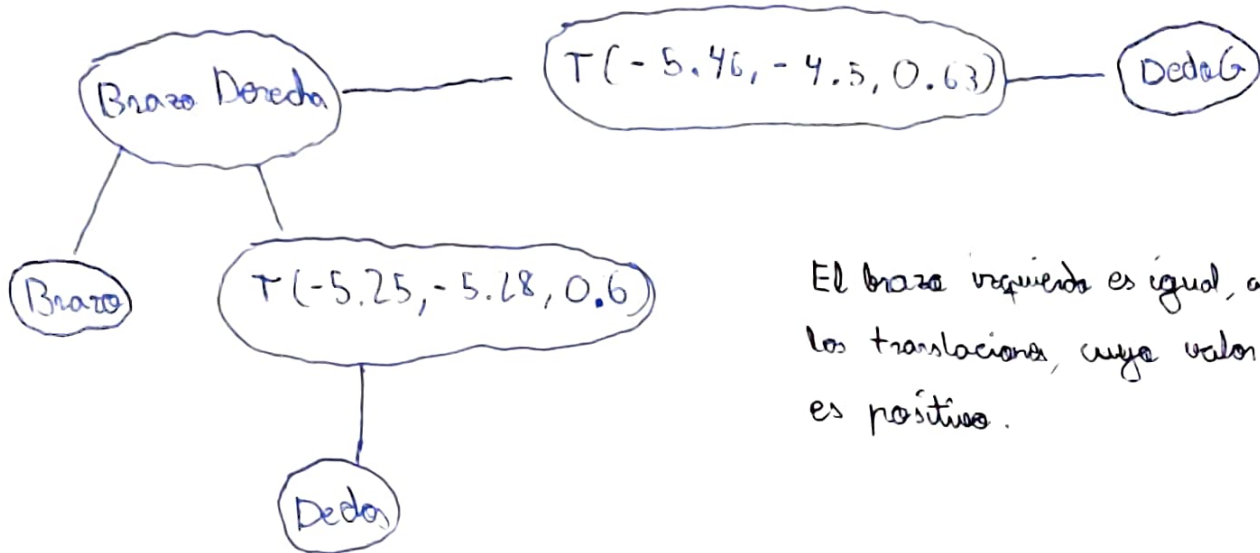 Brazo Derecho
T(-5.46, -4.5, 0.63)
DedoG
Brazo
T(-5.25, -5.28, 0.6)
Dedos
El brazo izquierdo es igual, a
los translaciones, cuyo valor
es positivo.